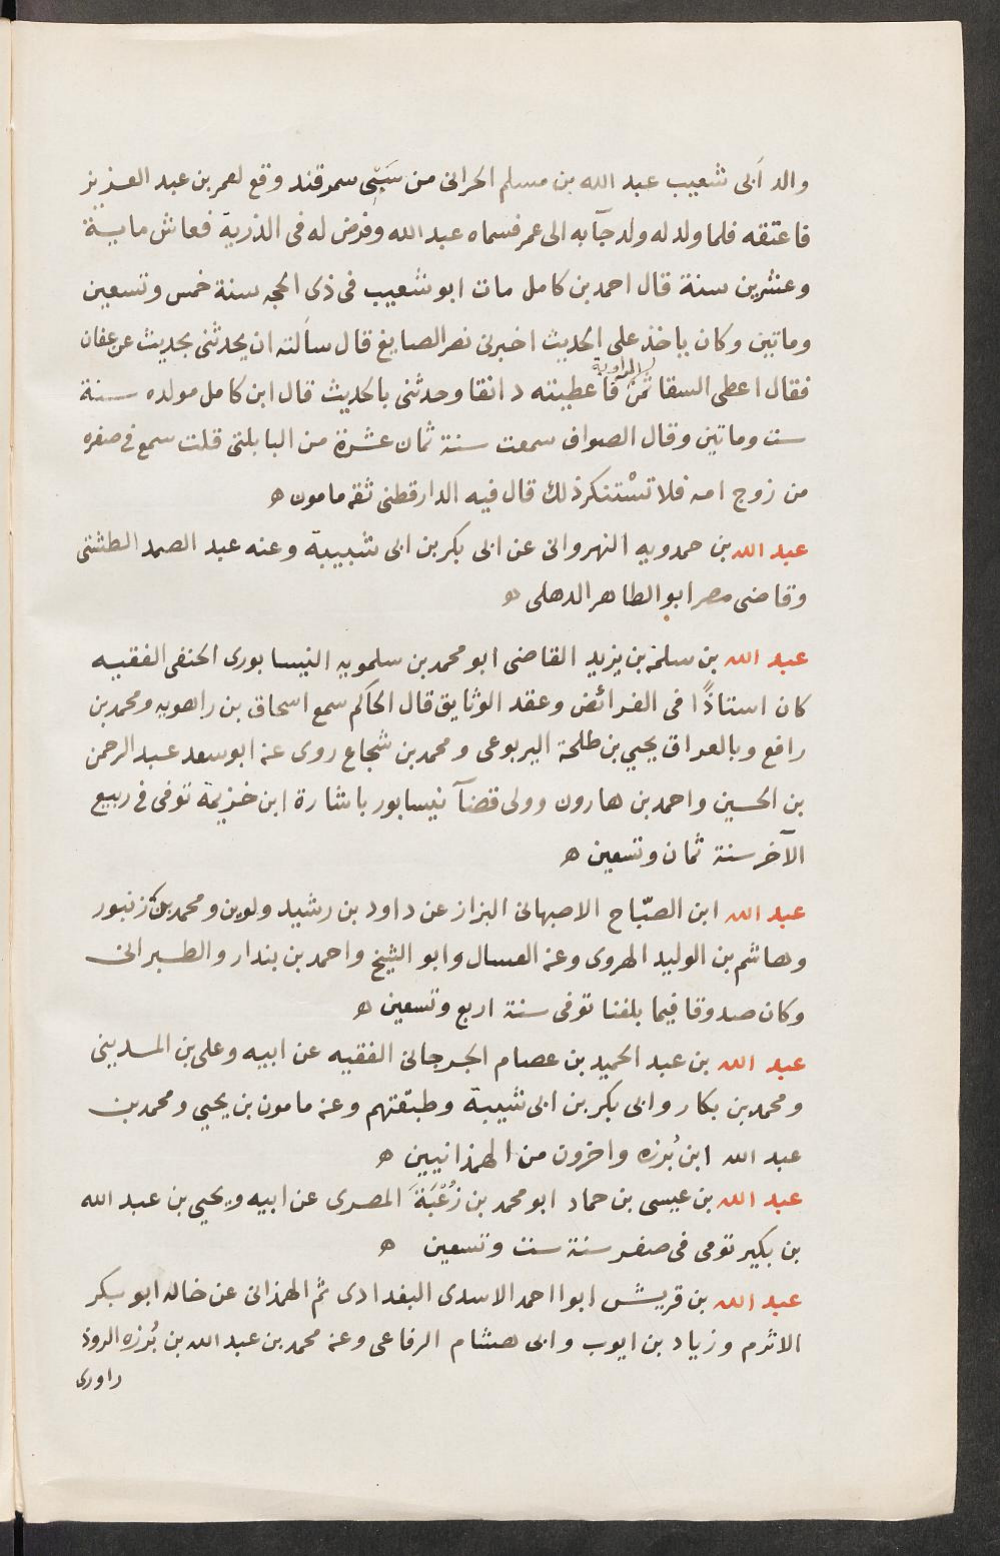 والد اَبى شعيب عبد الله بن مسلم الحرانى من سَبْىِ سمرقند وقع لعمر بن عبد العزيز
فاعتقه فلما ولد له ولد جآ به الى عمر فسماه عبد الله وفرض له فى الذرية فعاش ماية
وعشرين سنة قال احمد بن كامل مات ابو شعيب فى ذى الحجه سنة خمس وتسعين
وماتين وكان ياخذ على الحديث اخبرنى نصر الصايغ قال سألته ان يحدثنى بحديث عن عفان
فقال اعطى السقا ثمن الراوية فاعطيته دانقا وحدثنى بالحديث قال ابن كامل مولده سنة
ست وماتين وقال الصواف سمعت سنة ثمان عشرة من البابلتى قلت سمع فى صغره
من زوج امه فلا تسْتنكر ذلك قال فيه الدارقطنى ثقه مامون ه
عبد الله بن حمدويه النهروانى عن ابى بكر بن ابى شيبة وعنه عبد الصمد الطشتى
وقاضى مصر ابو الطاهر الدهلى ه
عبد الله بن سلمة بن يزيد القاضى ابو محمد بن سلمويه النيسابورى الحنفى الفقيه
كان استاذًا فى الفرائض وعقد الوثايق قال الحاكم سمع اسحاق بن راهويه ومحمد بن
رافع وبالعراق يحيي بن طلحة اليربوعى ومحمد بن شجاع روى عنه ابو سعد عبد الرحمن
بن الحسين واحمد بن هارون وولى قضآ نيسابور باشارة ابن خزيمة توفى فى ربيع
الآخر سنة ثمان وتسعين ه
عبد الله ابن الصبّاح الاصبهانى البزاز عن داود بن رشيد ولوين ومحمد بن زنبور
وهاشم بن الوليد الهروى وعنه العسال وابو الشيخ واحمد بن بندار والطبرانى
وكان صدوقا فيما بلغنا توفى سنة اربع وتسعين ه
عبد الله بن عبد الحميد بن عصام الجرجانى الفقيه عن ابيه وعلى بن المدينى
ومحمد بن بكار وابى بكر بن ابى شيبة وطبقتهم وعنه مامون بن يحيي ومحمد بن
عبد الله ابن بُرزه واخرون من الهمذانيين ه
عبد الله بن عيسى بن حماد ابو محمد بن زُغْبَةَ المصرى عن ابيه ويحيي بن عبد الله
بن بكير توفى فى صفر سنة ست وتسعين ه
عبد الله بن قريش ابو احمد الاسدى البغدادى ثم الهمذانى عن خاله ابو بكر
الاثرم وزياد بن ايوب وابى هشام الرفاعى وعنه محمد بن عبد الله بن بُرزه الروذ
راورى